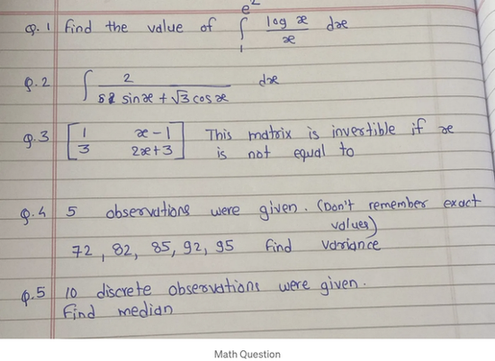 Q.1 find the value of ∫₁^e² log x / x dx
Q.2 ∫ 2 / sin x + √3 cos x dx
Q.3 [1 x-1 This matrix is invertible if x
3 2x+3] is not equal to
Q.4 5 observations were given. (Don't remember exact
values)
72, 82, 85, 92, 95 Find variance
Q.5 10 discrete observations were given.
Find median
Math Question